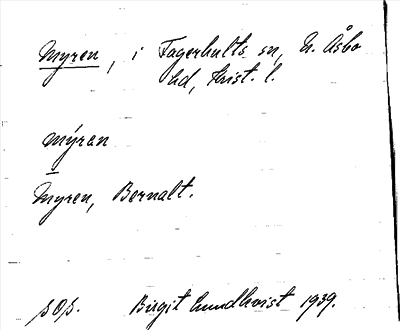 Myren, i Fagerhults sn, N. Åsbo
hd, Krist. l.
mýran
Myren, Bernalt.
sOs. Birgit Lundkvist 1939.